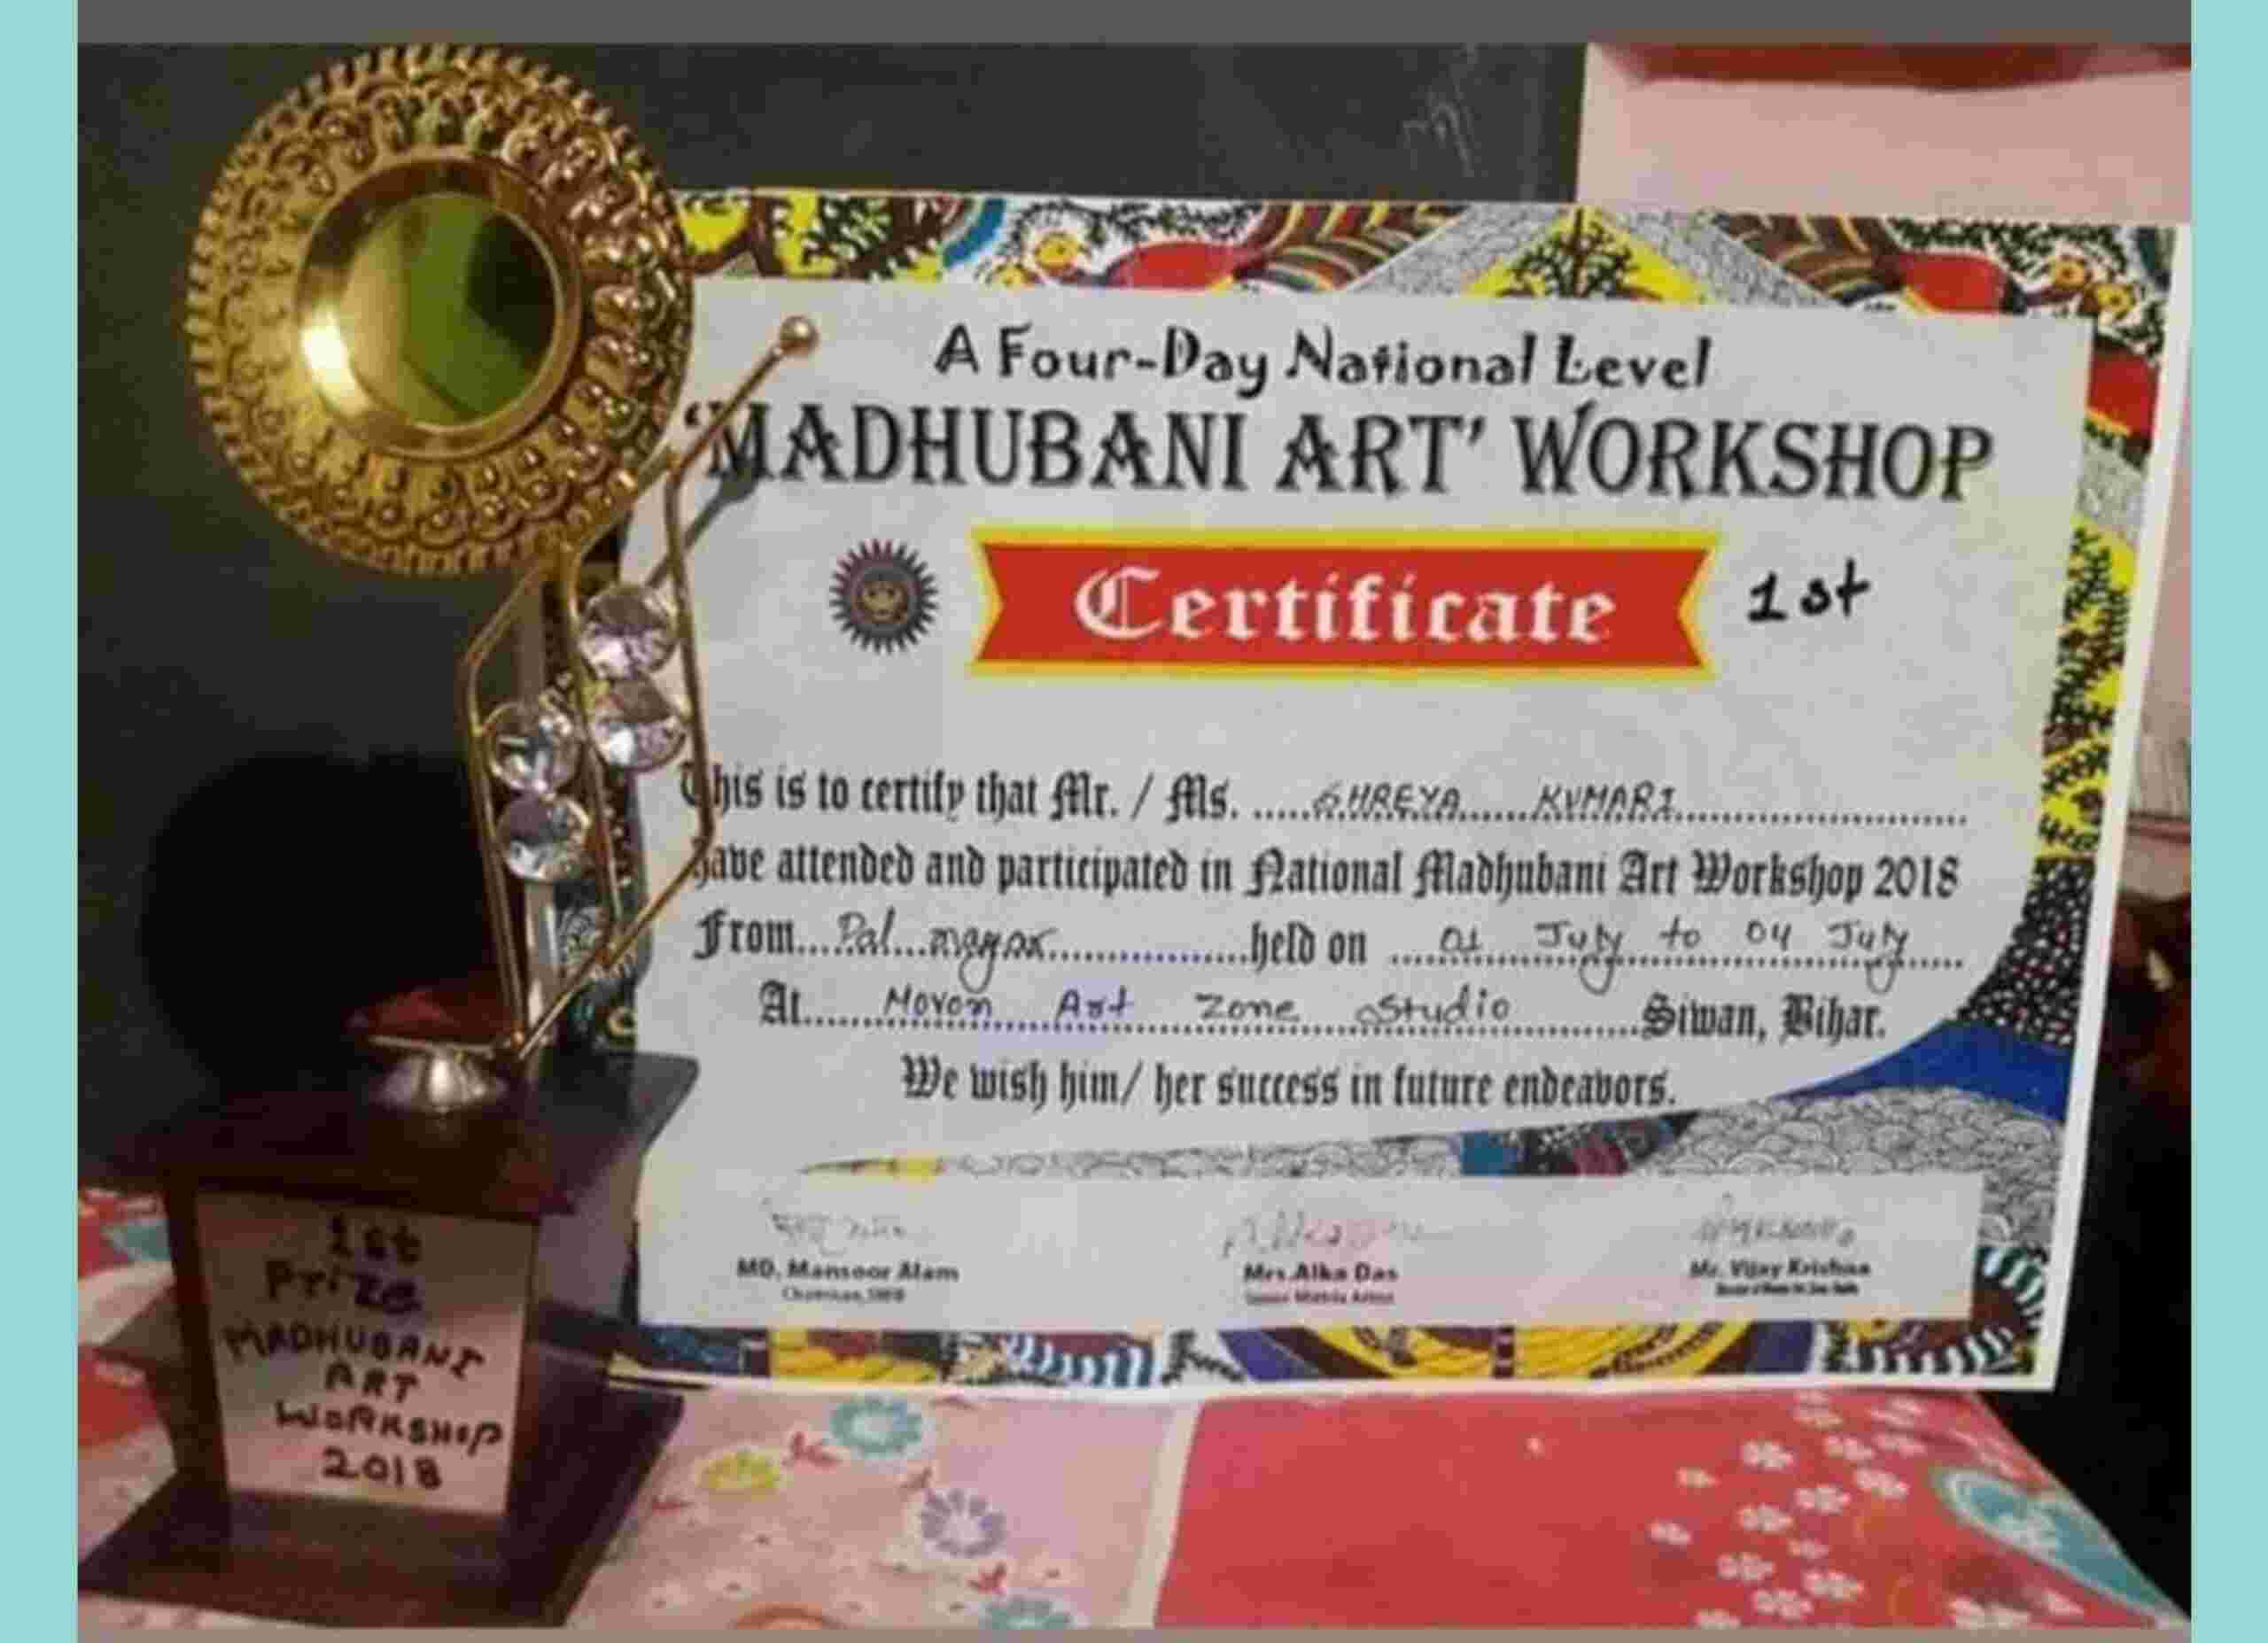 A Four-Day National Level
'MADHUBANI ART' WORKSHOP
Certificate 1st
This is to certify that Mr. / Ms. SHREYA KUMARI
have attended and participated in National Madhubani Art Workshop 2018
From held on 01 July to 04 July
At Art Zone Studio Siwan, Bihar.
We wish him/ her success in future endeavors.
MD. Mansoor Alam
Mrs. Alka Das
Mr. Vijay Krishna
1st
Prize
MADHUBANI
ART
WORKSHOP
2018